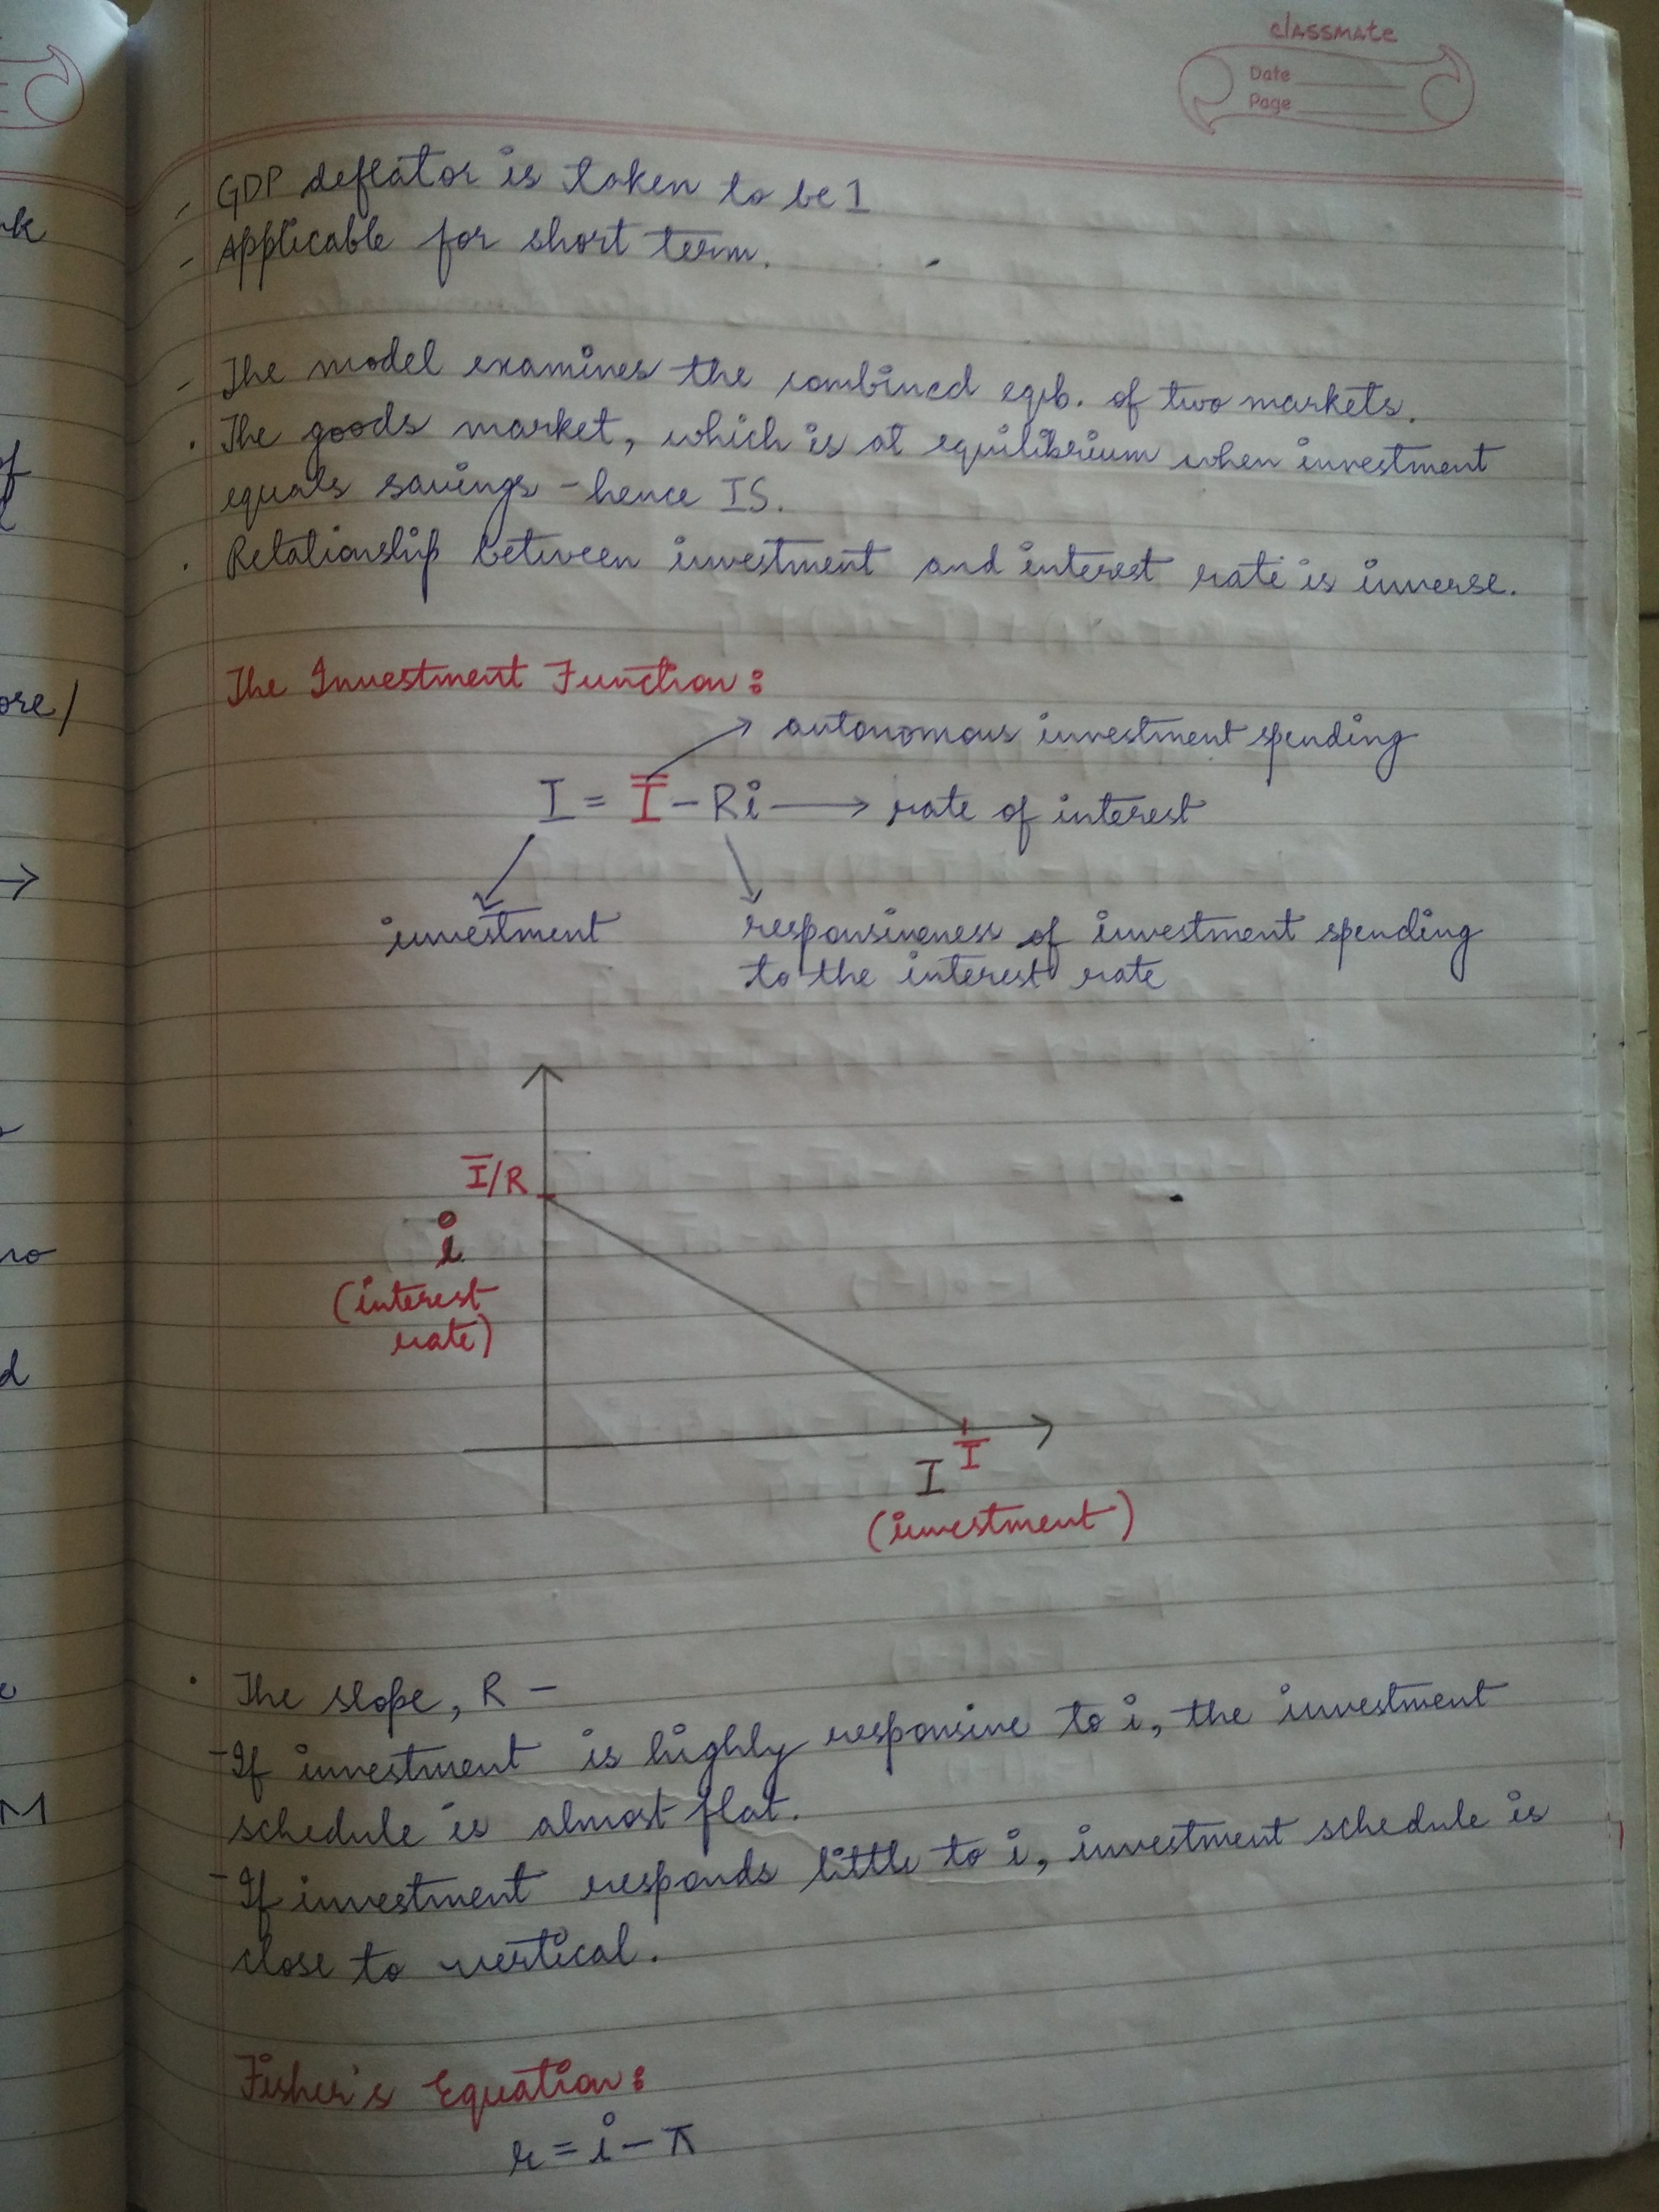 classmate
Date
Page
- GDP deflator is taken to be 1
- Applicable for short term.
- The model examines the combined eqb. of two markets.
. The goods market, which is at equilibrium when investment
equals savings - hence IS.
. Relationship between investment and interest rate is inverse.
The Investment Function:
→ autonomous investment spending
I = Ī - Ri → rate of interest
investment
responsiveness of investment spending
to the interest rate
Ī/R
i
(interest
rate)
I Ī
(investment)
. The slope, R -
- If investment is highly responsive to i, the investment
schedule is almost flat.
- If investment responds little to i, investment schedule is
close to vertical.
Fisher's Equation:
r = i - π